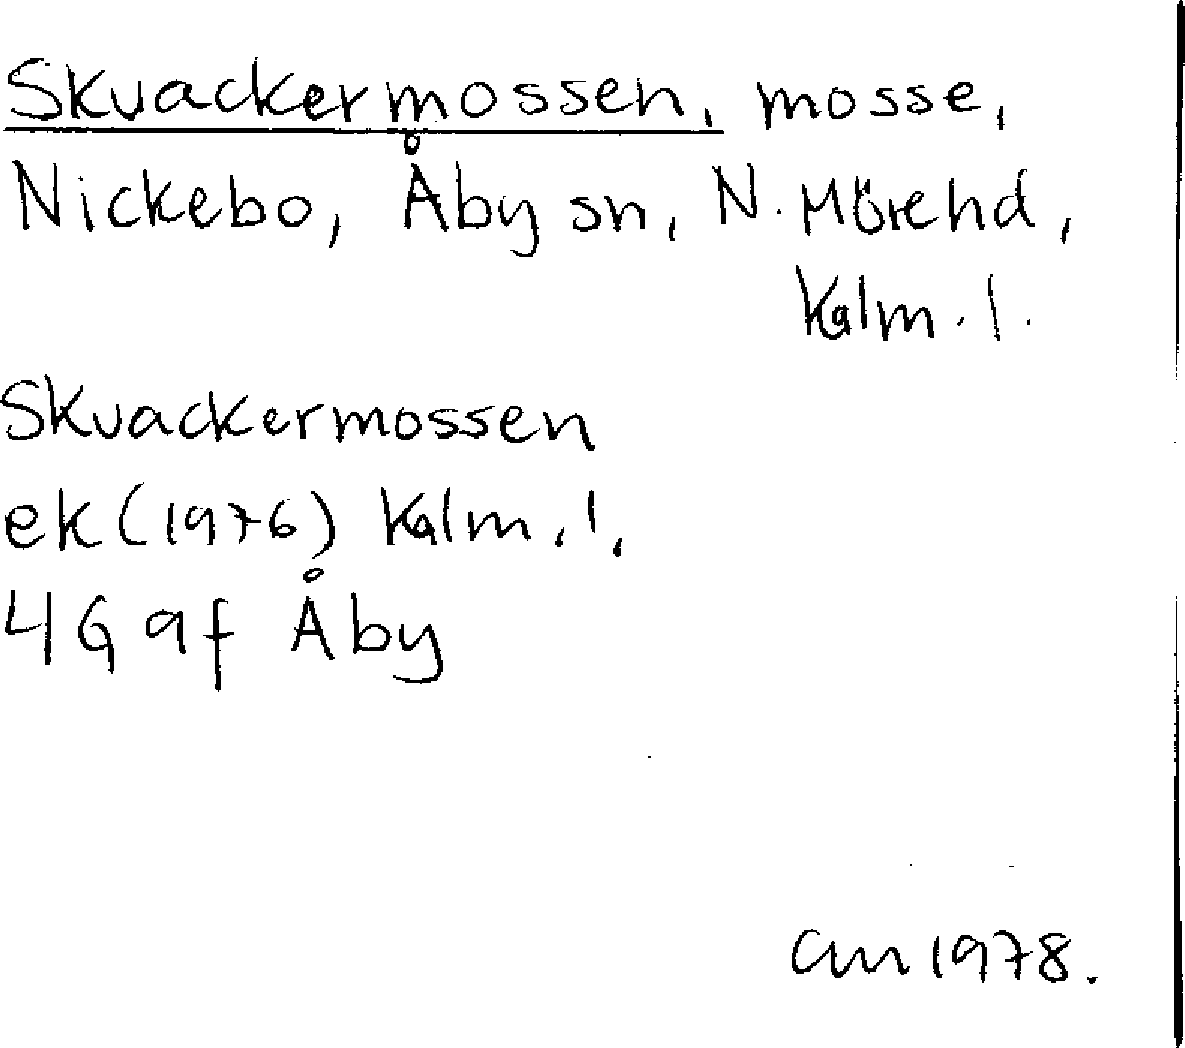 Skvackermossen, mosse,
Nickebo, Åby sn, N. Möre hd,
Kalm. l.
Skvackermossen
ek (1976) Kalm. l.
4G 9f Åby
1978.